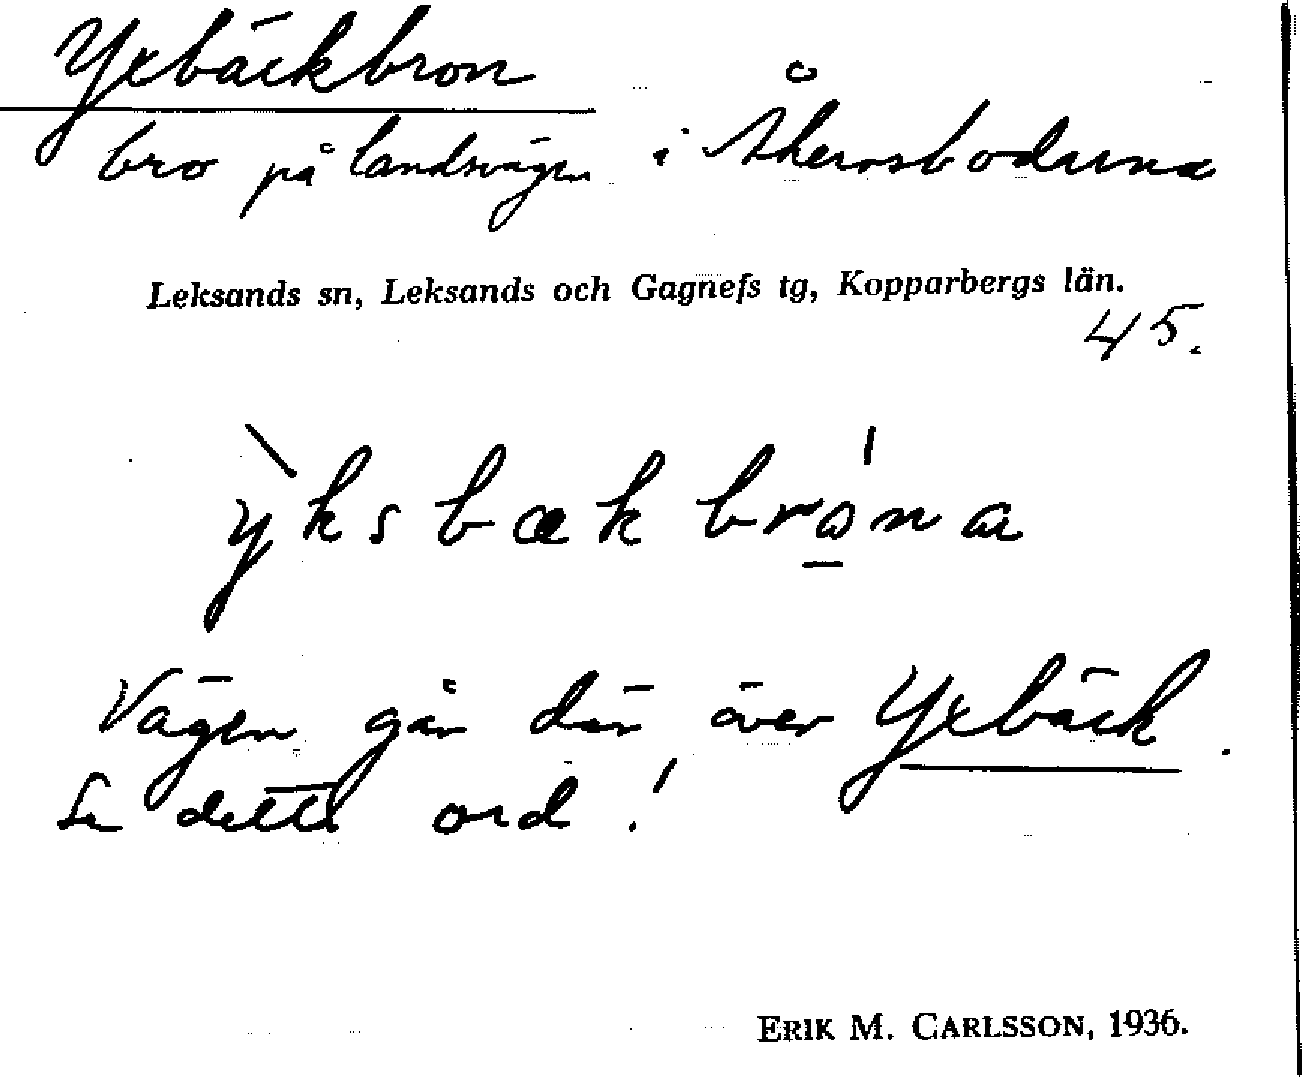 Yxbäckbron
bro på landsvägen i Åkersbodarna
Leksands sn, Leksands och Gagnefs tg, Kopparbergs län.
45.
ỳksbækbrона
Vägen går där över Yxbäck.
Se detta ord!
ERIK M. CARLSSON, 1936.